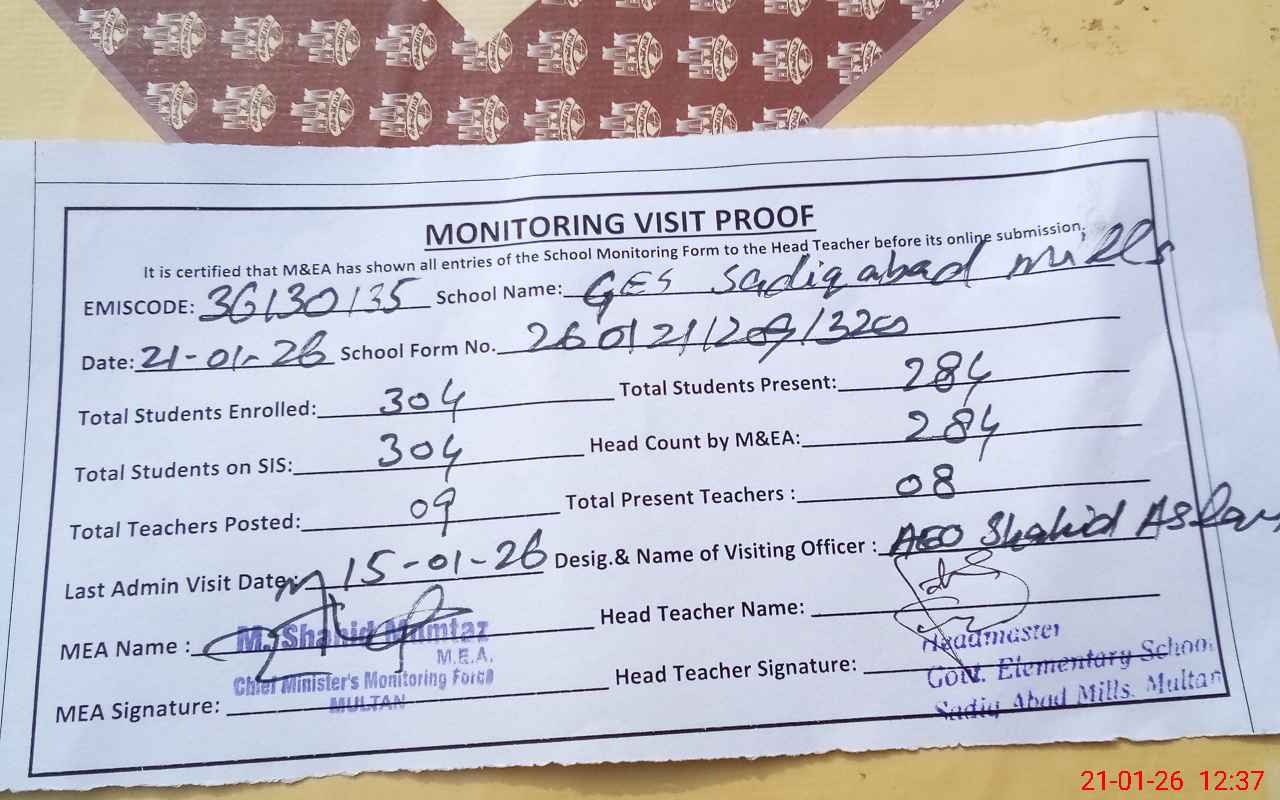 MONITORING VISIT PROOF
It is certified that M&EA has shown all entries of the School Monitoring Form to the Head Teacher before its online submission.
EMISCODE: 36130135 School Name: GES Sadiqabad Mills
Date: 21-01-26 School Form No.
Total Students Enrolled: 304 Total Students Present: 284
Total Students on SIS: 304 Head Count by M&EA: 284
Total Teachers Posted: 09 Total Present Teachers : 08
Last Admin Visit Date: 15-01-26 Desig.& Name of Visiting Officer : AEO Shahid Aslam
MEA Name : M. Shahid Mumtaz Head Teacher Name:
M.E.A.
Chief Minister's Monitoring Force
MULTAN
MEA Signature: Head Teacher Signature:
Headmaster
Govt. Elementary School
Sadiq Abad Mills. Multan
21-01-26 12:37